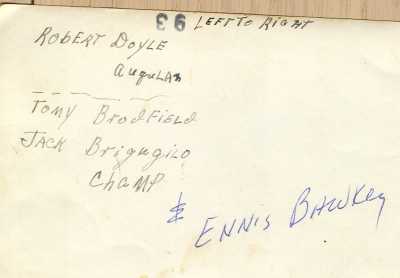 93 LEFT TO RIGHT
ROBERT DOYLE
AuguLAR
TOMY BrodFIELD
JACK Brigugilo
ChaMP
& ENNIS BAWKEY